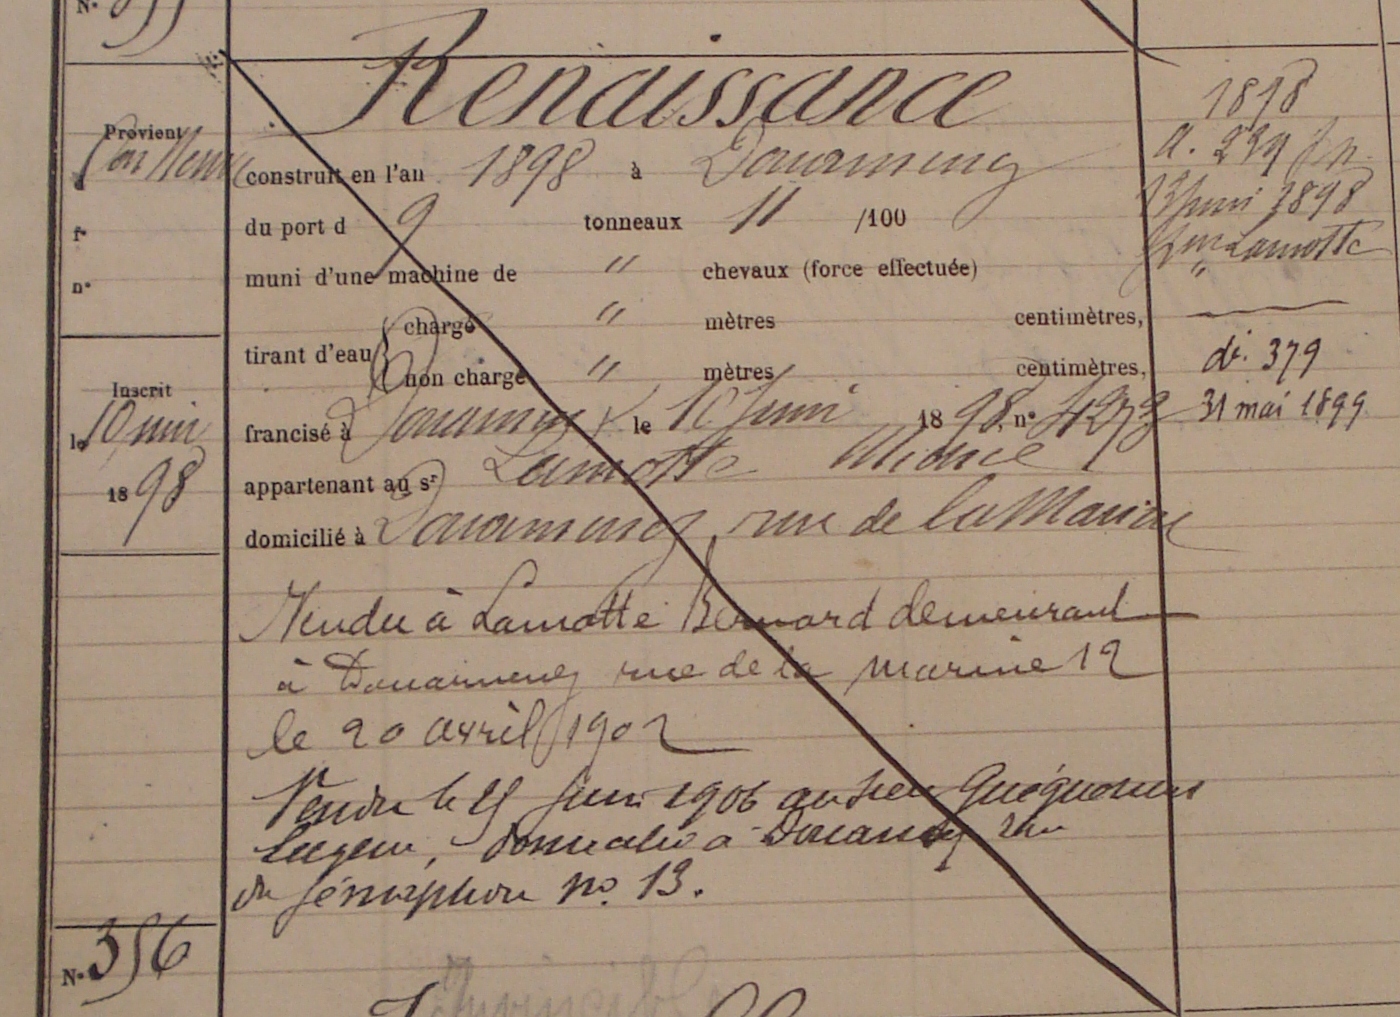 N°
Renaissance
Provient
construit en l'an 1898 à Douarnenez
du port d 9 tonneaux 11 /100
f°
muni d'une machine de " chevaux (force effectuée)
n°
tirant d'eau
chargé " mètres centimètres,
non chargé " mètres centimètres,
Inscrit
le 10 juin
1898
francisé à Douarnenez le 10 Juin 1898. n°
appartenant au sr Lamotte
domicilié à Douarnenez rue de la Marine
Vendu à Lamotte Bernard demeurant
à Douarnenez rue de la marine 12
le 20 avril 1902
Vendu le Juin 1906 au sieur
domicilié à Douarnenez rue
du no. 13.
1898
a. 229
13 Juin 1898
Lamotte
"
di. 379
31 mai 1899
N° 356
Invincible